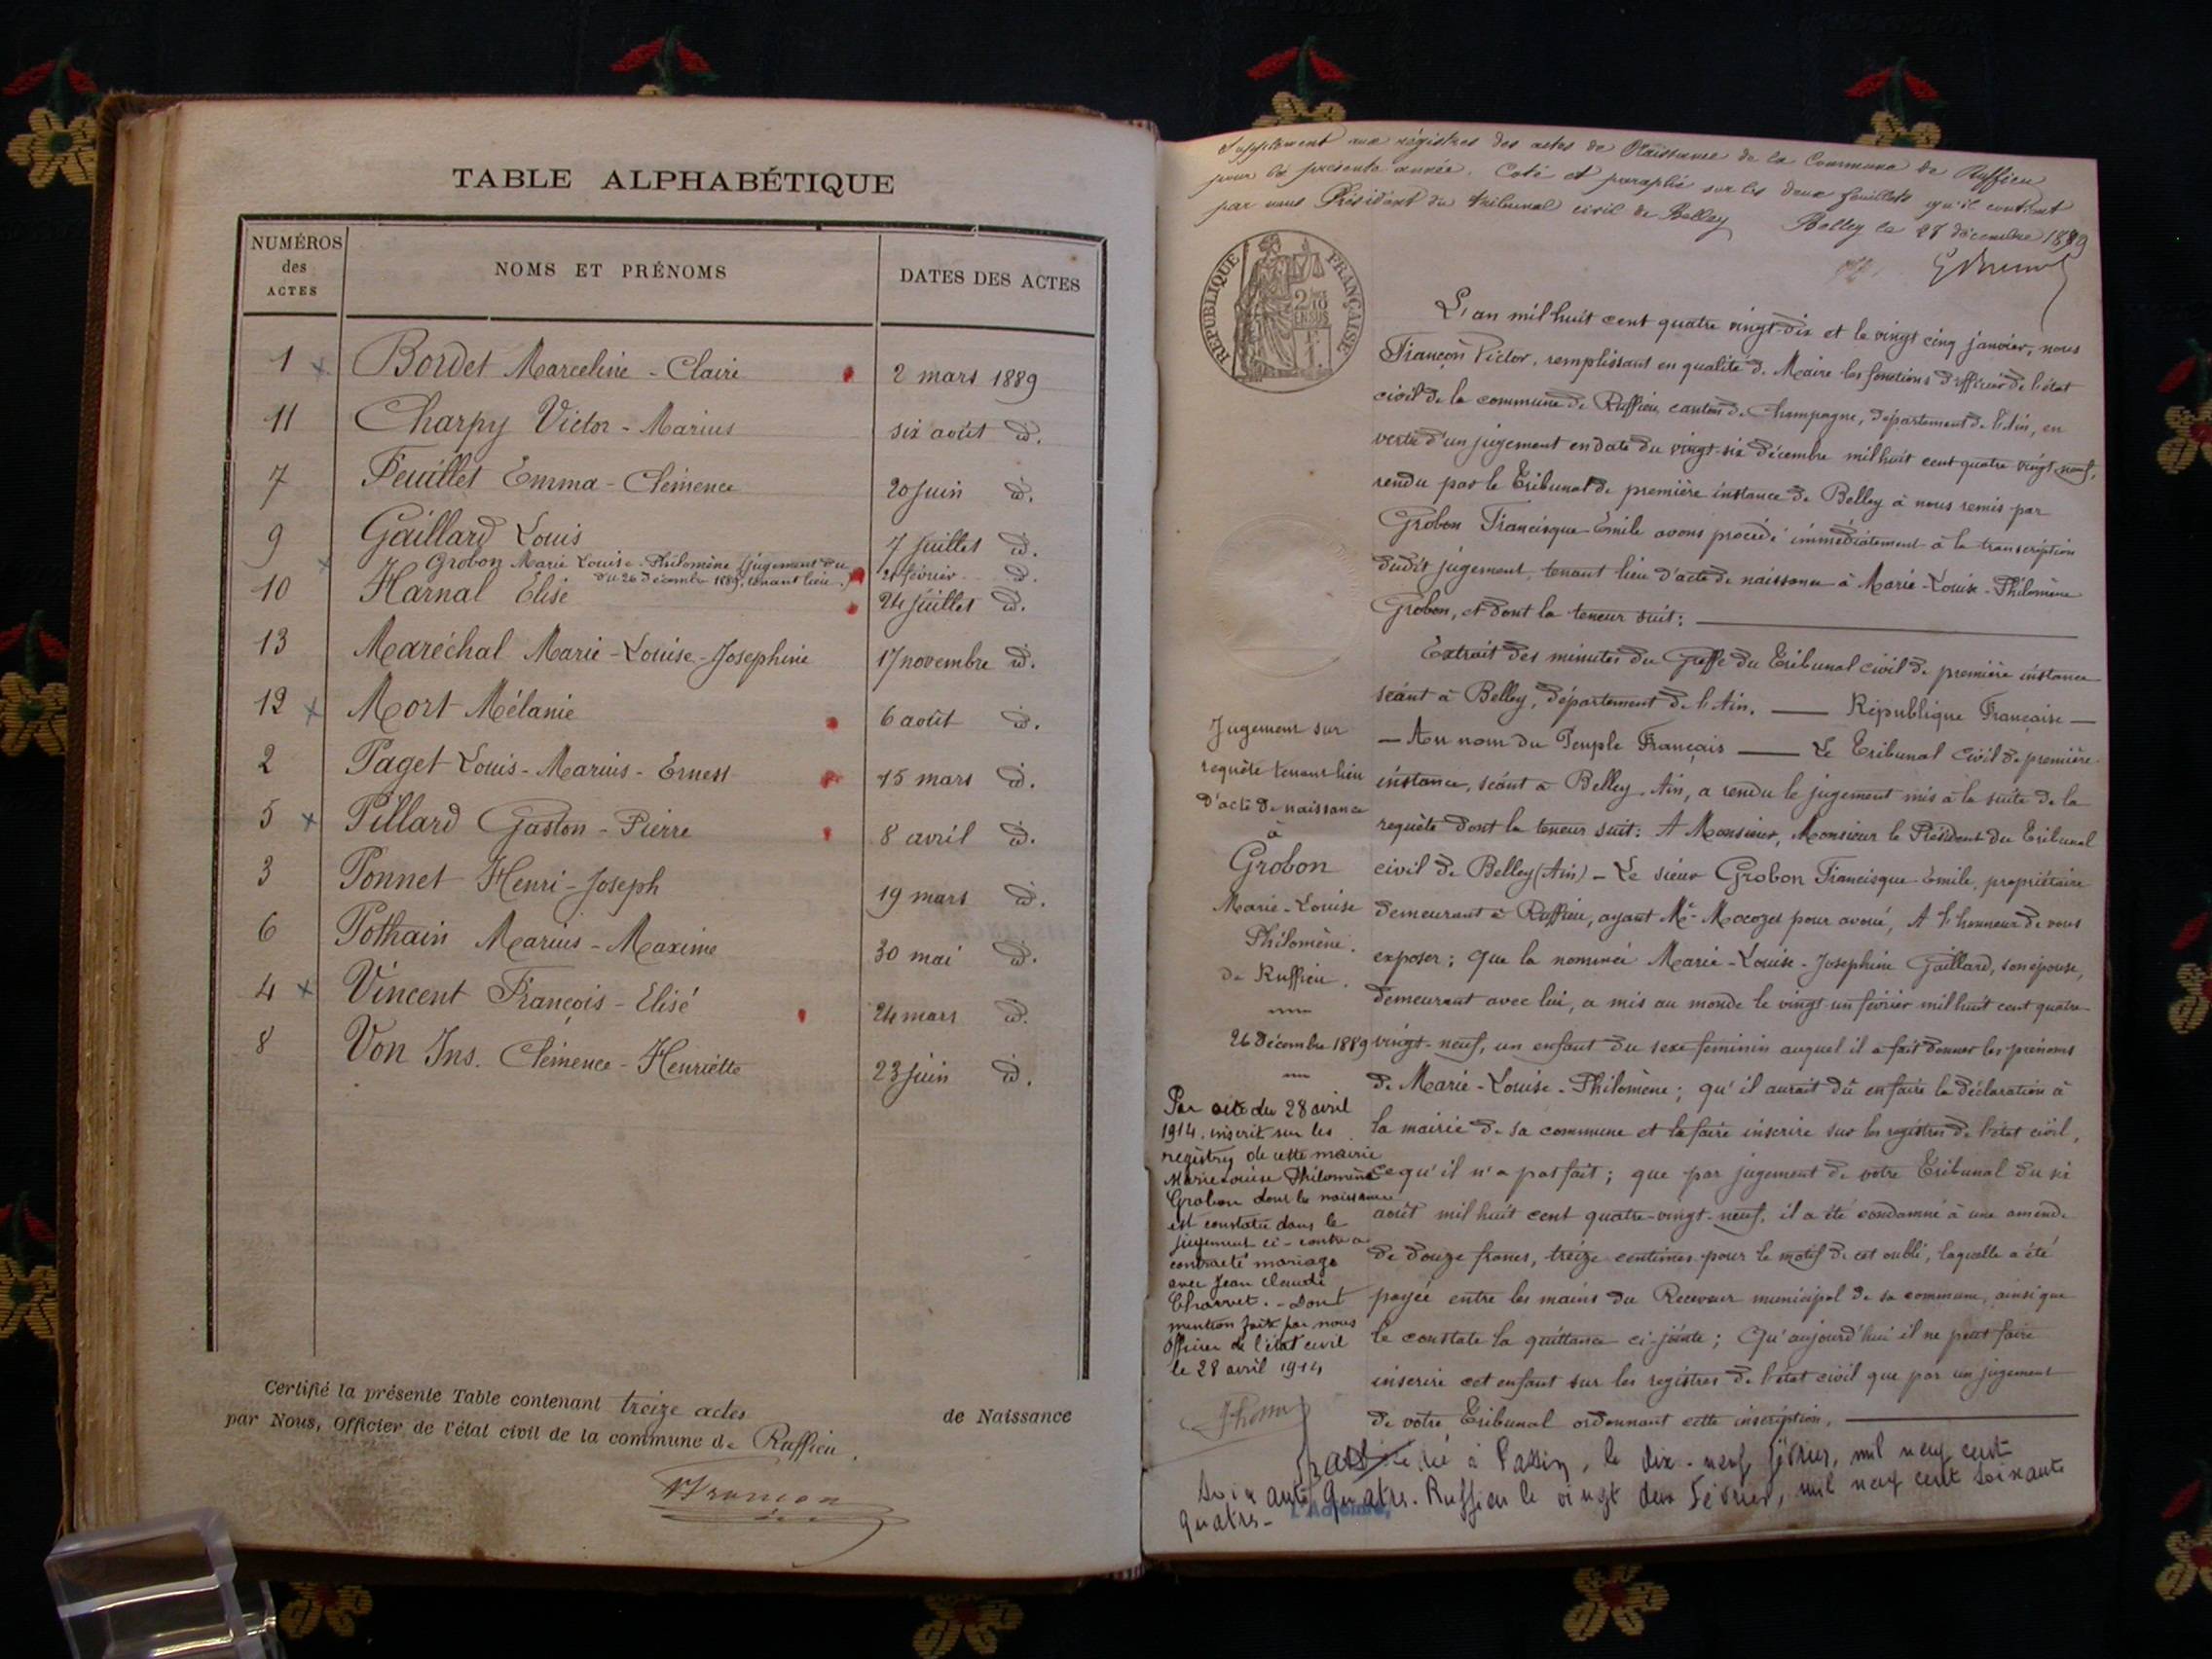 TABLE ALPHABÉTIQUE
NUMÉROS des ACTES
NOMS ET PRÉNOMS
DATES DES ACTES
1 Bordet Marceline - Claire 2 mars 1889
11 Charpy Victor - Marius six août id.
7 Feuillet Emma - Clémence 20 juin id.
9 Gaillard Louis 7 juillet id.
Grobon Marie Louise - Philomène (jugement du
du 26 décembre 1889, tenant lieu.) 21 février id.
10 Harnal Elise 24 juillet id.
13 Maréchal Marie - Louise - Josephine 17 novembre id.
12 Mort Mélanie 6 août id.
2 Paget Louis - Marius - Ernest 15 mars id.
5 Pillard Gaston - Pierre 8 avril id.
3 Ponnet Henri - Joseph 19 mars id.
6 Pothain Marius - Maxime 30 mai id.
4 Vincent François - Elisé 24 mars id.
8 Von Ins. Clémence - Henriette 23 juin id.
Certifié la présente Table contenant treize actes de Naissance
par Nous, Officier de l'état civil de la commune de Ruffieu.
Françon
Supplément aux régistres des actes de Naissance de la Commune de Ruffieu
pour la présente année. Coté et paraphé sur les deux feuillets qu'il contient
par nous Président du tribunal civil de Belley Belley le 27 décembre 1889
RÉPUBLIQUE FRANÇAISE
L'an mil huit cent quatre vingt-dix et le vingt cinq janvier, nous
Françon Victor, remplissant en qualité de Maire les fonctions d'officier de l'état
civil de la commune de Ruffieu, canton de Champagne, département de l'Ain, en
vertu d'un jugement en date du vingt-six décembre mil huit cent quatre-vingt neuf,
rendu par le Tribunal de première instance de Belley à nous remis par
Grobon Francisque Emile avons procédé immédiatement à la transcription
dudit jugement, tenant lieu d'acte de naissance à Marie-Louise-Philomène
Grobon, et dont la teneur suit:
Extrait des minutes du Greffe du Tribunal civil de première instance
séant à Belley, département de l'Ain. — République Française —
— Au nom du Peuple Français — Le Tribunal Civil de première
instance, séant à Belley, Ain, a rendu le jugement mis à la suite de la
requête dont la teneur suit: A Monsieur, Monsieur le Président du Tribunal
civil de Belley (Ain) - Le sieur Grobon Francisque-Emile, propriétaire
demeurant à Ruffieu, ayant Me Macozet pour avoué, A l'honneur de vous
exposer; que la nommée Marie-Louise-Josephine Gaillard, son épouse,
demeurant avec lui, a mis au monde le vingt-un février mil huit cent quatre-
vingt-neuf, un enfant du sexe feminin auquel il a fait donner les prénoms
de Marie-Louise-Philomène; qu'il aurait dû en faire la déclaration à
la mairie de sa commune et la faire inscrire sur les registres de l'état civil,
ce qu'il n'a pas fait; que par jugement de votre Tribunal du six
août mil huit cent quatre-vingt-neuf, il a été condamné à une amende
de douze francs, treize centimes pour le motif de cet oubli, laquelle a été
payée entre les mains du Receveur municipal de sa commune, ainsi que
le constate la quittance ci-jointe; Qu'aujourd'hui il ne peut faire
inscrire cet enfant sur les registres de l'état civil que par un jugement
de votre Tribunal ordonnant cette inscription.
Jugement sur
requête tenant lieu
d'acte de naissance
à
Grobon
Marie-Louise
Philomène.
de Ruffieu.
26 Décembre 1889
Par acte du 28 avril
1914. inscrit sur les
registres de cette mairie
Marie Louise Philomène
Grobon dont la naissance
est constatée dans le
jugement ci-contre a
contracté mariage
avec Jean Claude
Charvet. - Dont
mention faite par nous
Officier de l'état civil
le 28 avril 1914
décédée à Passin, le dix-neuf février, mil neuf cent
soixante quatre. Ruffieu le vingt deux Février, mil neuf cent soixante
quatre-